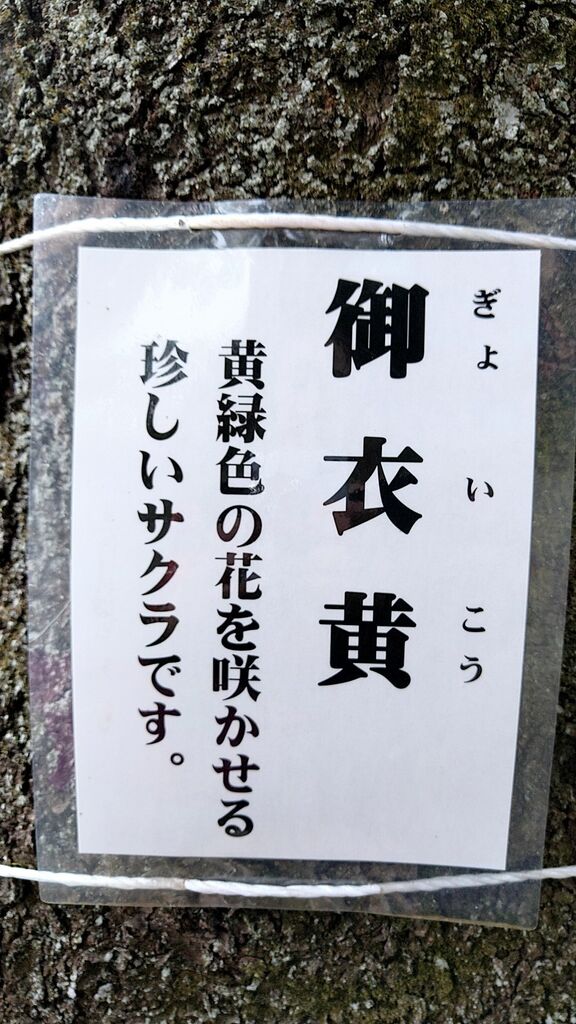 ぎょいこう
御衣黄
黄緑色の花を咲かせる
珍しいサクラです。